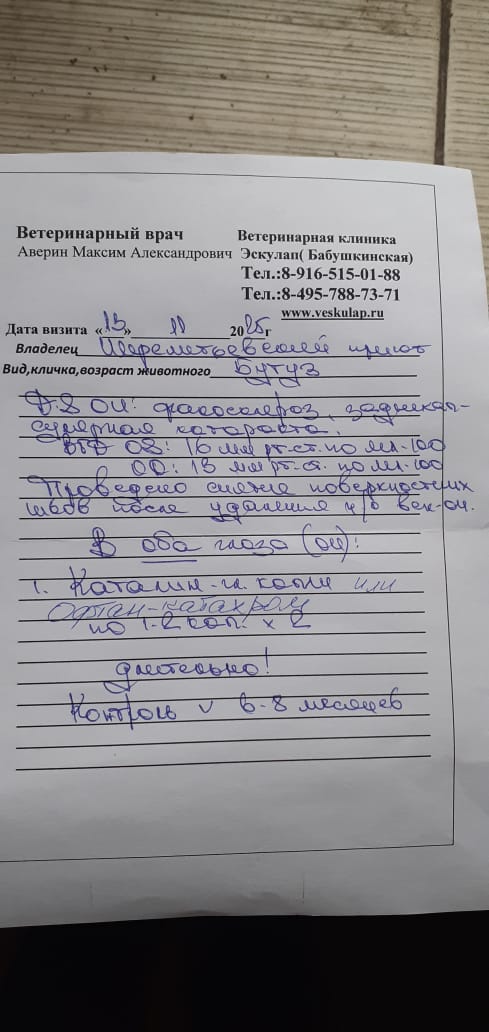 Ветеринарный врач
Аверин Максим Александрович
Ветеринарная клиника
Эскулап( Бабушкинская)
Тел.:8-916-515-01-88
Тел.:8-495-788-73-71
www.veskulap.ru
Дата визита «13» 11 2025г
Владелец Шереметьевский приют
Вид,кличка,возраст животного Бутуз
D.S OU: факосклероз, заднекап-
сулярная катаракта.
ВГД OS: 16 мм рт.ст. по мл-100
OD: 13 мм рт.ст. по мл-100
Проведено снятие поверхностных
швов после удаления н/о век-OU.
В оба глаза (OU):
1. Каталин-гл. капли или
Офтан-катахром
по 1-2 кап. х 2
длительно!
Контроль v 6-8 месяцев